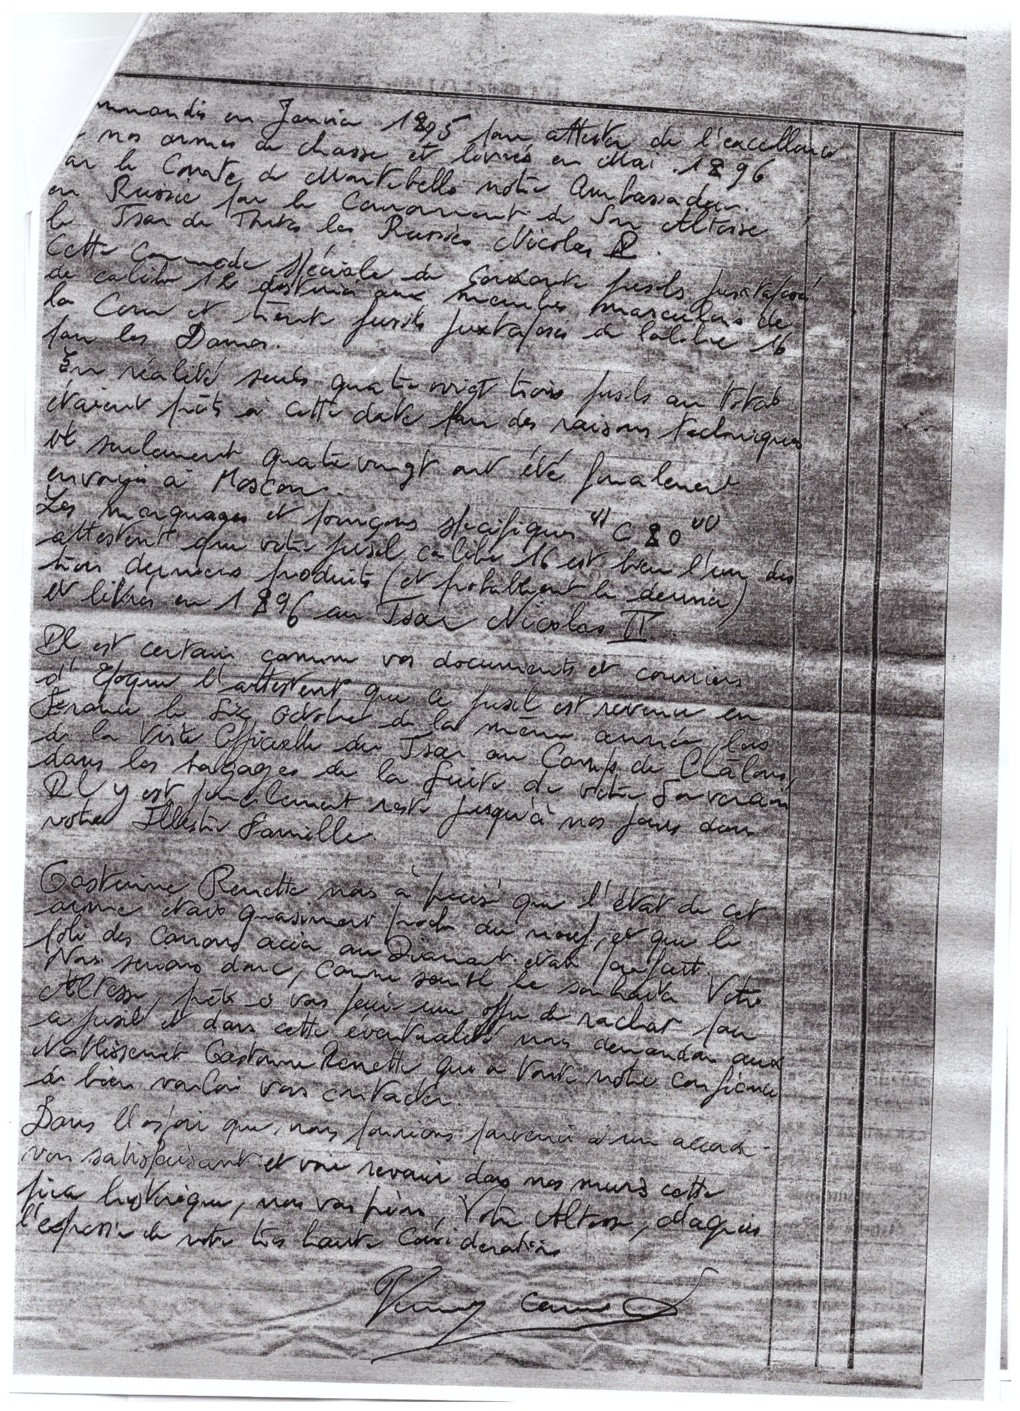 mmandés en Janvier 1895 pour attester de l'excellence
nos armes de chasse et livrés en Mai 1896
ar le Comte de Montebello notre Ambassadeur
en Russie pour le Couronnement de Son Altesse
le Tsar de Toutes les Russies Nicolas II.
Cette Commande spéciale de soixante fusils juxtaposés
de calibre 12 destinés aux membres masculins de
la Cour et trente fusils juxtaposés de calibre 16
pour les Dames.
En réalité seuls quatre vingt trois fusils au total
étaient prêts à cette date pour des raisons techniques
et seulement quatre vingt ont été finalement
envoyés à Moscou.
Les marquages et poinçons spécifiques "C 80"
attestent que votre fusil calibre 16 est bien l'un des
trois derniers produits (et probablement le dernier)
et livrés en 1896 au Tsar Nicolas II.
Il est certain comme vos documents et courriers
d'époque l'attestent que ce fusil est revenu en
France le Six Octobre de la même année lors
de la Visite Officielle du Tsar au Camp de Châlons,
dans les bagages de la Suite de votre Souverain
Il y est finalement resté jusqu'à nos jours dans
votre Illustre Famille.
Gastinne Renette nous a précisé que l'état de cet
arme était quasiment proche du neuf, et que le
poli des canons acier au Diamant était parfait.
Nous serions donc, comme semble le souhaiter Votre
Altesse, prêts à vous faire une offre de rachat pour
ce fusil et dans cette éventualité nous demandons aux
établissement Gastinne Renette qui a toute notre confiance
de bien vouloir vous contacter.
Dans l'espoir que nous pourrons parvenir à un accord
vous satisfaisant et voir revenir dans nos murs cette
pièce historique, nous vous prions, Votre Altesse,
l'expression de notre très haute Considération